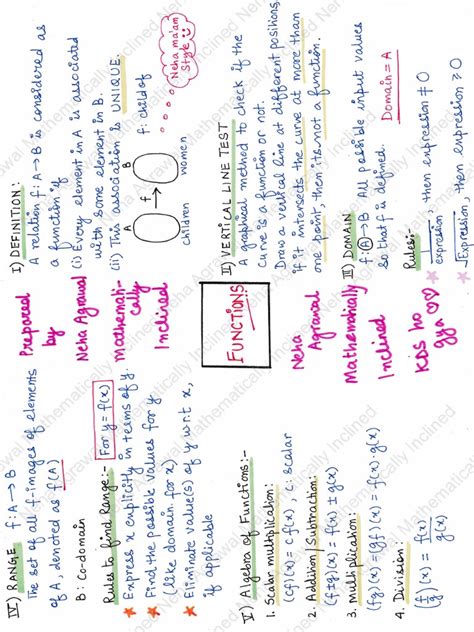 I) DEFINITION:
A relation f: A→B is considered as
a function if
(i) Every element in A is associated
with some element in B.
(ii) This association is UNIQUE.
A
B
f
f: child of
children
women
Neha ma'am
Style
II) VERTICAL LINE TEST
A graphical method to check if the
curve is a function or not.
Draw a vertical line at different positions,
if it intersects the curve at more than
one point, then its not a function.
III) DOMAIN
f: A→B All possible input values
so that f is defined.
Domain = A
Rules:-
★ 1/expression, then expression ≠ 0
★ √expression, then expression ≥ 0
Prepared
by
Neha Agrawal
Mathemati-
cally
Inclined
FUNCTIONS
Neha
Agrawal
Mathematically
Inclined
Kids ho
gya ♡♡
IV) RANGE f: A→B
The set of all f-images of elements
of A, denoted as f(A)
B: Co-domain
Rules to find Range:- For y = f(x)
★ Express x explicitly in terms of y.
★ Find the possible values for y
(like domain for x)
★ Eliminate value(s) of y wrt x,
if applicable
V) Algebra of Functions:-
1. Scalar multiplication:
(cf)(x) = c f(x), c: scalar
2. Addition/Subtraction:
(f±g)(x) = f(x) ± g(x)
3. Multiplication:
(fg)(x) = (gf)(x) = f(x)·g(x)
4. Division:
(f/g)(x) = f(x)/g(x)
Neha Agrawal Mathematically Inclined